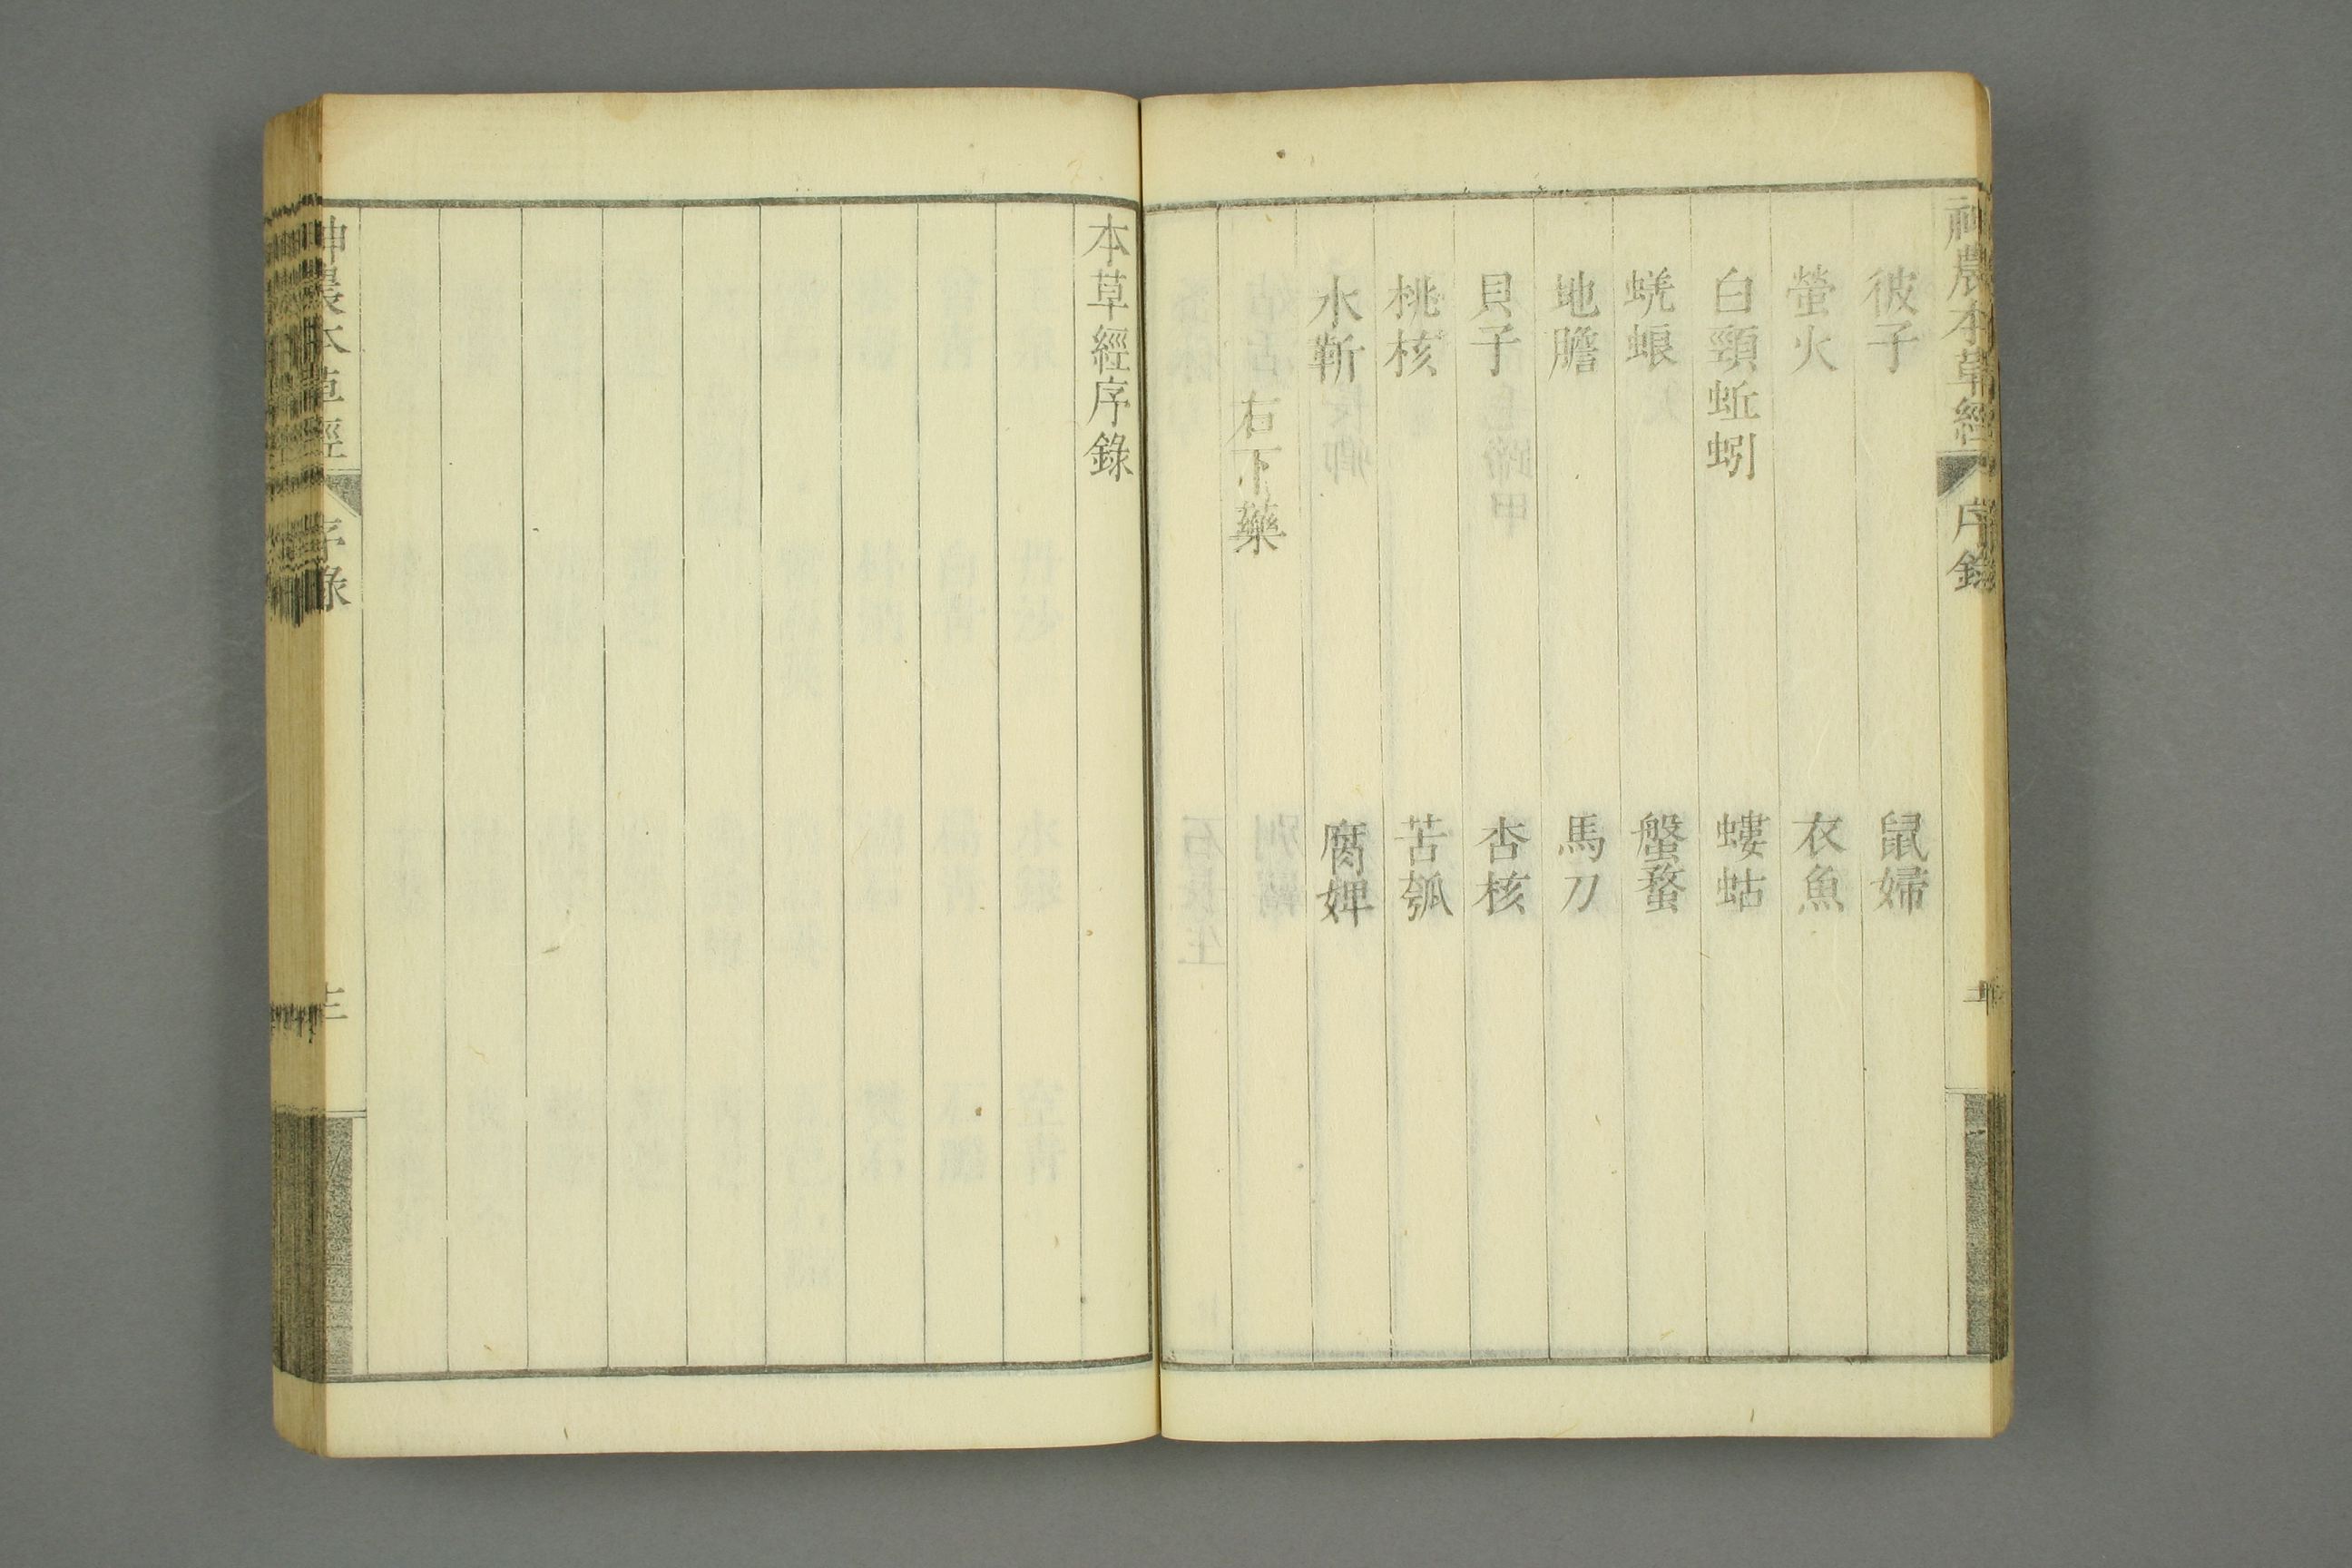 神農本草經 序錄
彼子 鼠婦
螢火 衣魚
白頸蚯蚓 螻蛄
蜣蜋 盤蝥
地膽 馬刀
貝子 杏核
桃核 苦瓠
水靳 腐婢
右下藥
本草經序錄
神農本草經 序錄